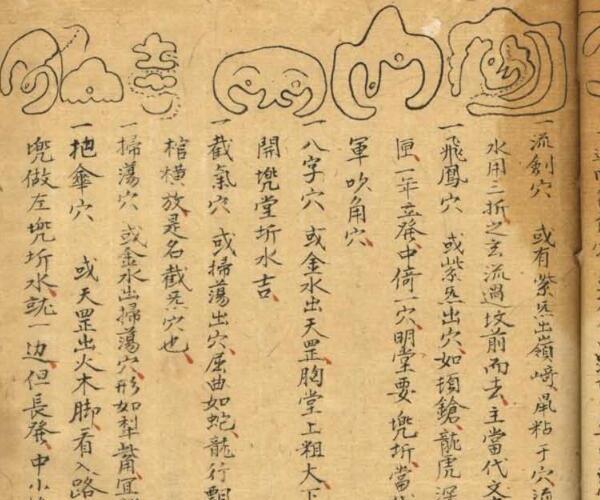 一流創穴　或有紫炁出嶺﨑鼡粘于穴流
水用三折之玄流過坟前而去主當代文
一飛鳳穴　或紫炁出穴如頃鎗龍虎深
匣一年立發中倚一穴明堂要兜圻當
軍吹角穴
一八字穴　或金水出天罡胸堂上粗大下
開兜堂圻水吉
一截氣穴　或掃蕩出穴屈曲如蛇龍行
棺橫放是名截炁穴也
一掃蕩穴　或金水出掃蕩穴形如犁
一把傘穴　或天罡出火木脚看入路
兜做左兜圻水就一边但長發中小